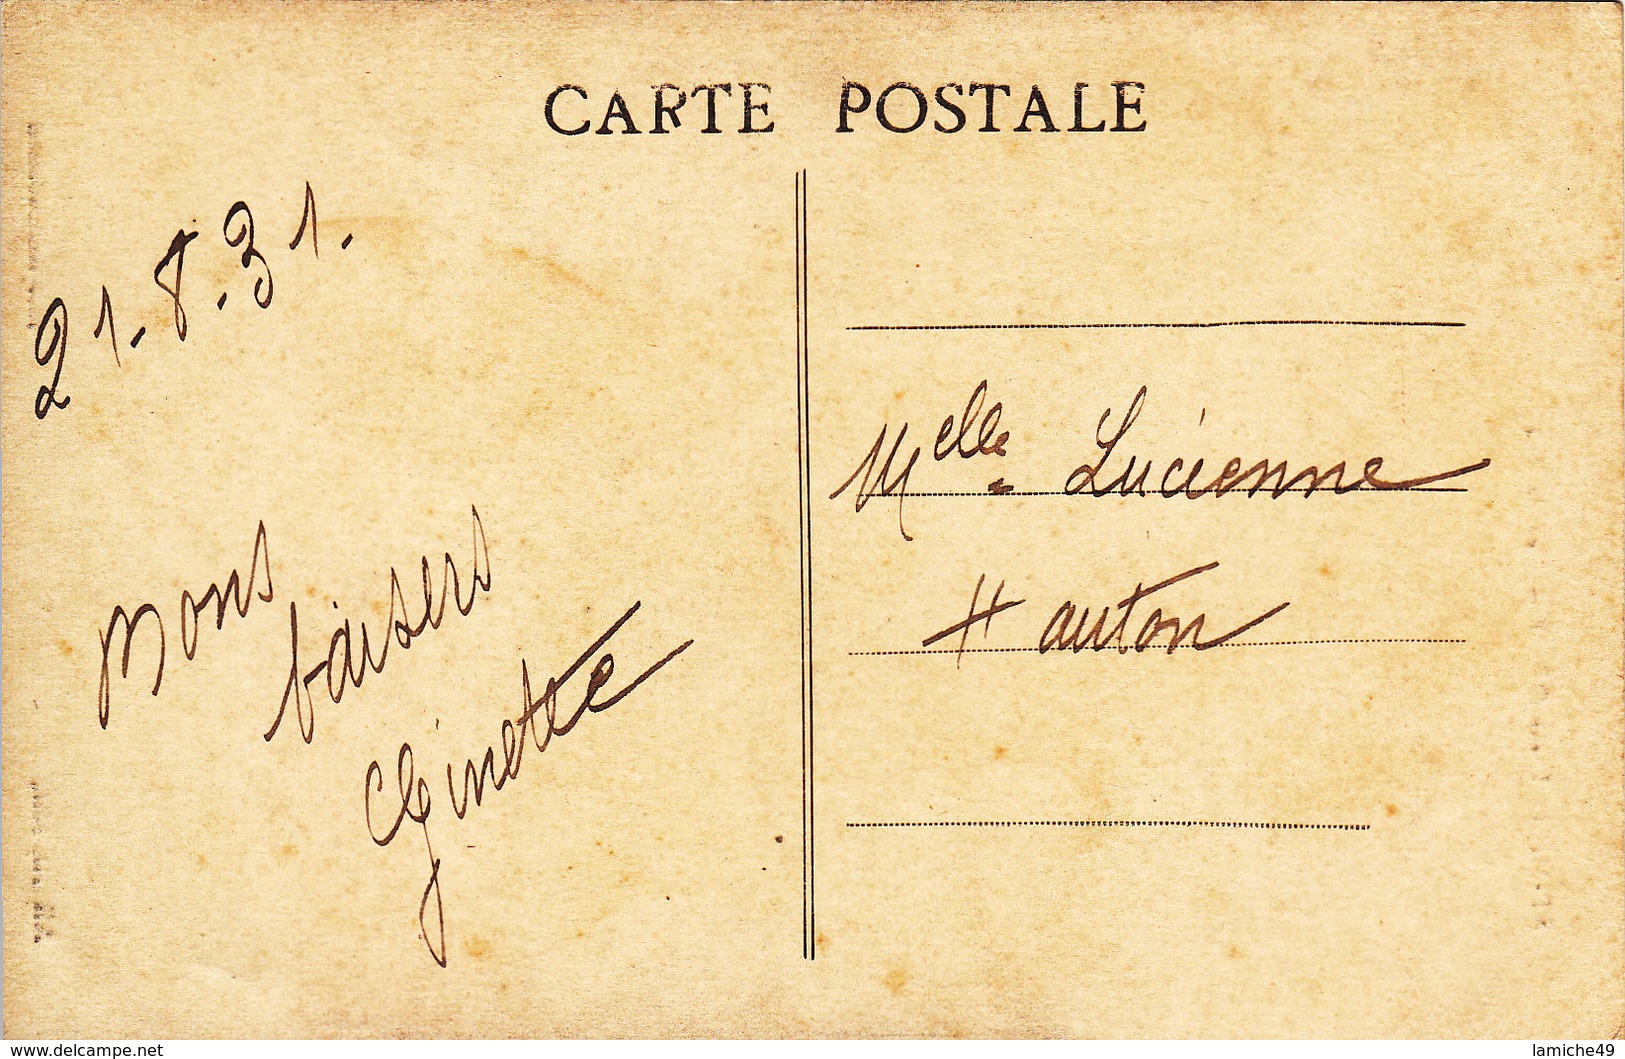 CARTE POSTALE
21.8.31.
Mons
baisers
Ginette
Melle Lucienne
Hauton
www.delcampe.net
lamiche49